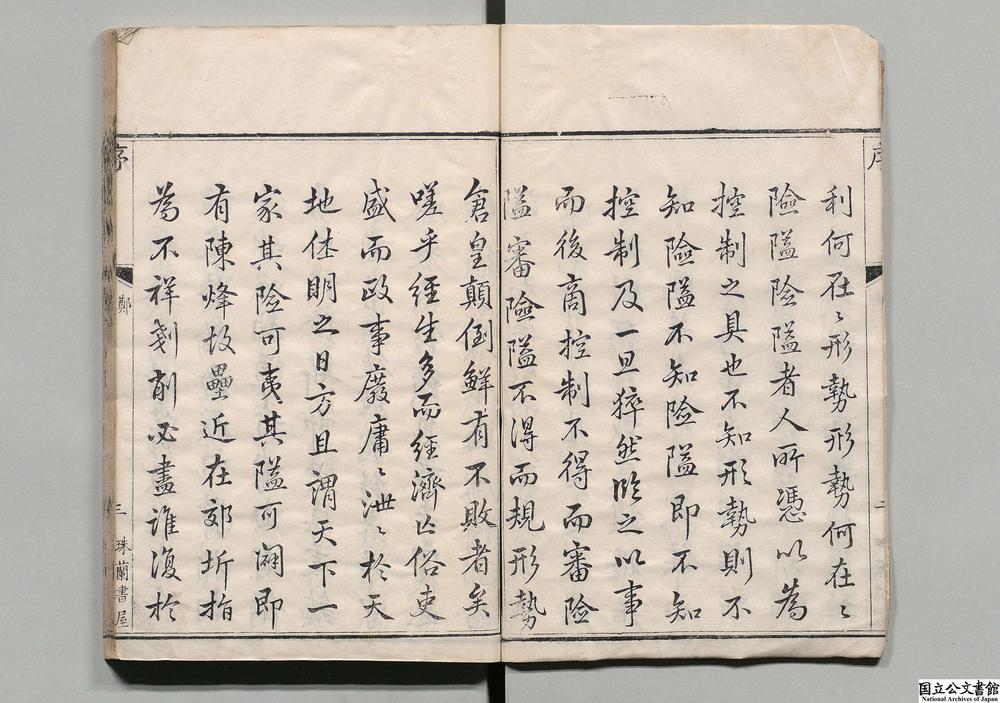 序
二
利何在〻形勢形勢何在〻
險隘險隘者人所憑以為
控制之具也不知形勢則不
知險隘不知險隘即不知
控制及一旦猝然臨之以事
而後商控制不得而審險
隘審險隘不得而規形勢
倉皇顛倒鮮有不敗者矣
嗟乎經生多而經濟亡俗吏
盛而政事廢庸〻泄〻於天
地休明之日方且謂天下一
家其險可夷其隘可闢即
有陳烽故壘近在郊圻指
為不祥剗削必盡誰復於
序
鄭
三
珠蘭書屋
国立公文書館
National Archives of Japan